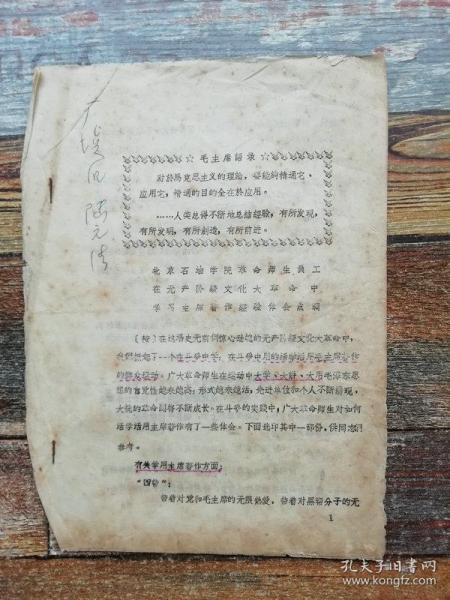 ☆毛主席语录☆
对於马克思主义的理论，要能夠精通它、
应用它，精通的目的全在於应用。
……人类总得不断地总结经验，有所发现，
有所发明，有所創造，有所前进。
北京石油学院革命师生员工
在无产阶级文化大革命中
学习主席著作经验体会点滴
〔按〕在这场史无前例惊心动魄的无产阶级文化大革命中，
在斗争中学，在斗争中用的活学活用毛主席著作
的群众运动。广大革命师生在运动中大学、大讲、大用毛泽东思
想的自觉性越来越高；形式越来越活，先进单位和个人不断涌现，
大批的革命闯将不断成长。在斗争的实践中，广大革命师生对如何
活学活用主席著作有了一些体会。下面选印其中一部份，供同志们
参考。
有关学用主席著作方面：
“四带”：
带着对党和毛主席的无限热爱，带着对黑帮分子的无
1
孔夫子旧书网
www.kongfz.com